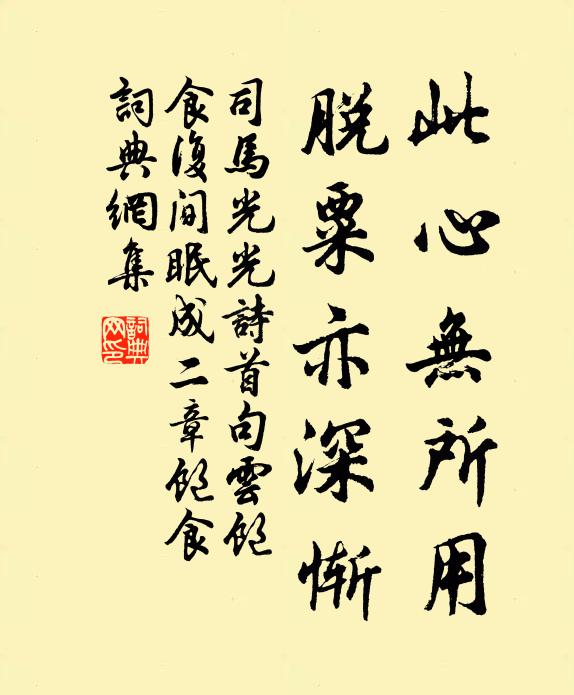 此心無所用
脫粟亦深慚
司馬光光詩首句雲飽
食復間眠成二章飽食
詞典網集
詞典
网印